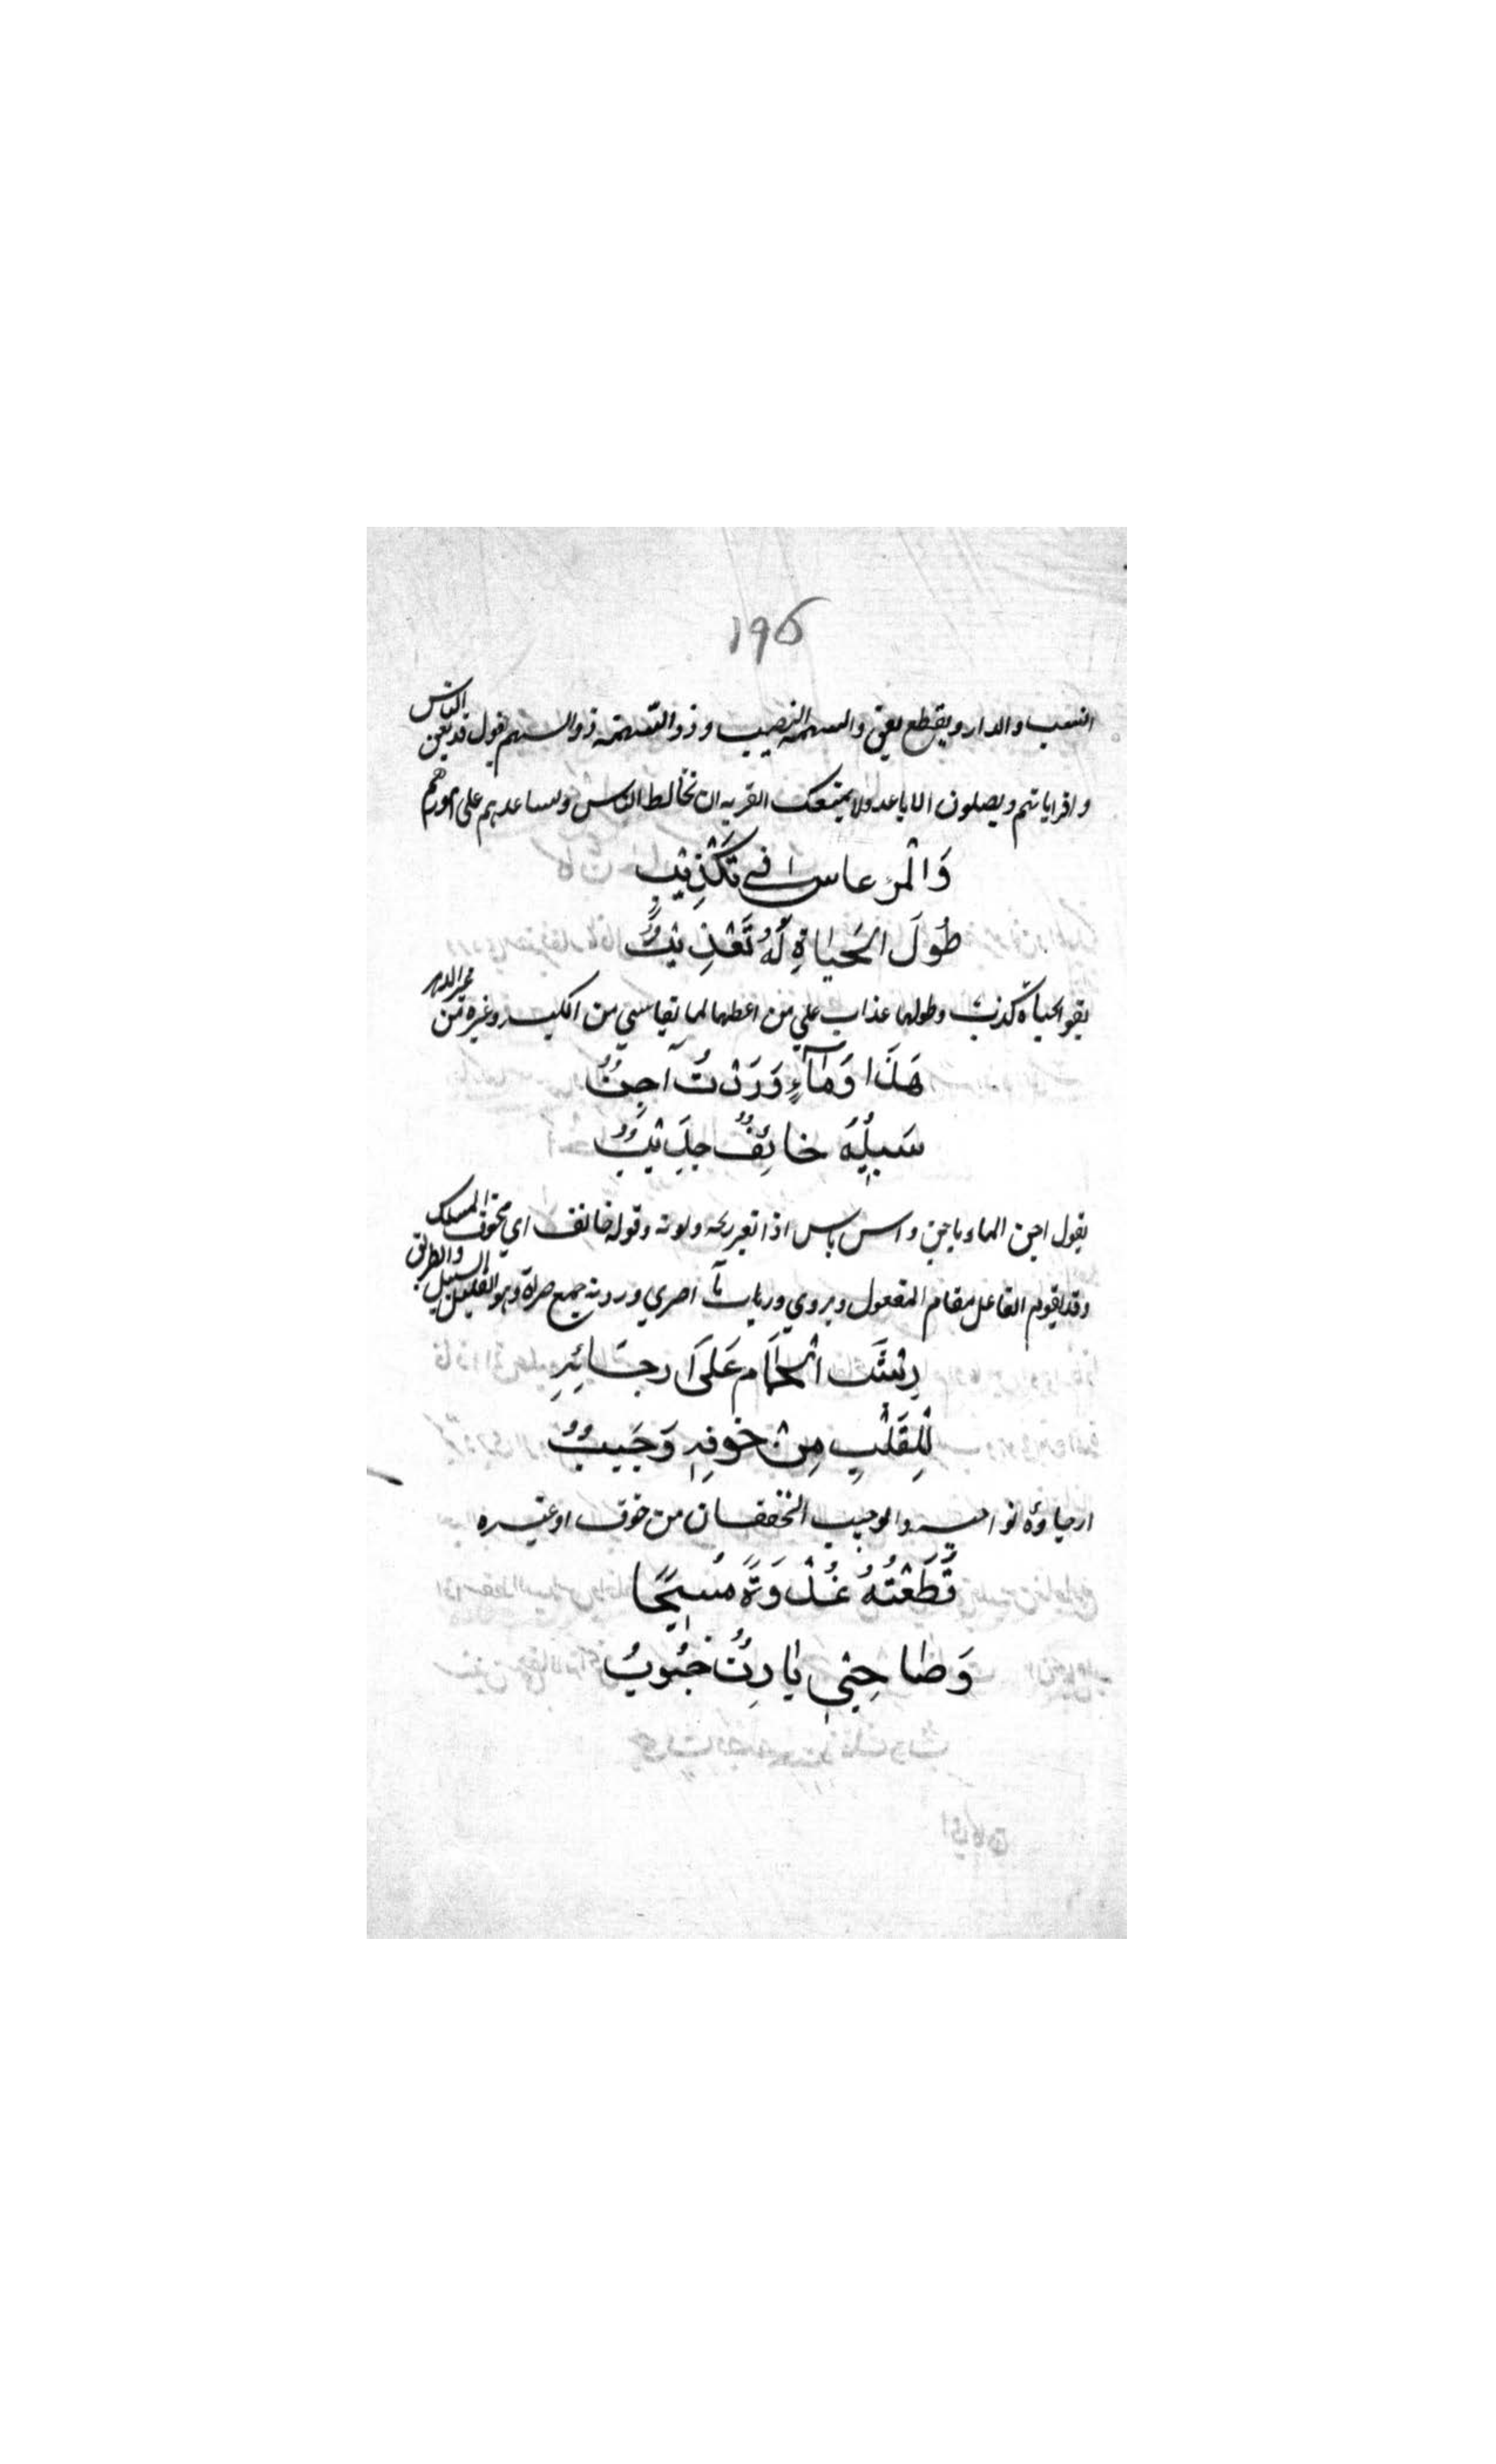 ١٩٥
النسب والدار ويقطع يعق والسهمة النصيب وذو السهمة ذو السهم يقول قد يعق الناس
واقراباتهم ويصلون الاباعد ولا يمنعك القربه ان تخالط الناس وتساعدهم على امورهم
وَالْمرء عاش في تَكْذِيْبٍ
طُولَ الحَياةِ لَهُ تَعْذِيْبٌ
يقو الحياة كذب وطولها عذاب علي من اعطيها لما يقاسي من الكبر وغيره من غير الدهر
هَذَا وَمَاءٍ وَرَدْتُ آجِنٌ
سَبِيْلُهُ خائِفٌ جَدِيْبٌ
يقول اجن الماء ياجن واسن ياسن اذا تغير ريحه ولونه وقوله خائف اي مخوف المسلك
وقد يقوم الفاعل مقام المفعول ويروي ورياث ما اصري وردته جمع صراة وهو القليل السبيل والطريق
رِيْشُ الحَمَام عَلَى ارجَائِهِ
لِلْقَلْبِ مِنْ خوفِهِ وَجَيبٌ
ارجاؤه نواحيه والوجيب الخفقان من خوف او غيره
قَطَعْتُهُ غُدْوَةً مُسِيْحًا
وَصَاحِبِي بَادِنٌ خَبُوبُ